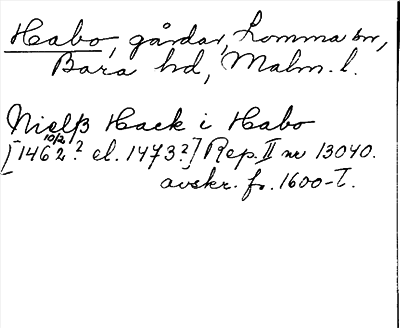 Habo, gårdar, Lomma sn,
Bara hd, Malm. l.
Nielß Hack i Habo
[1462? 10/2 el. 1473?] Rep. II nr 13040.
avskr. fr. 1600-T.